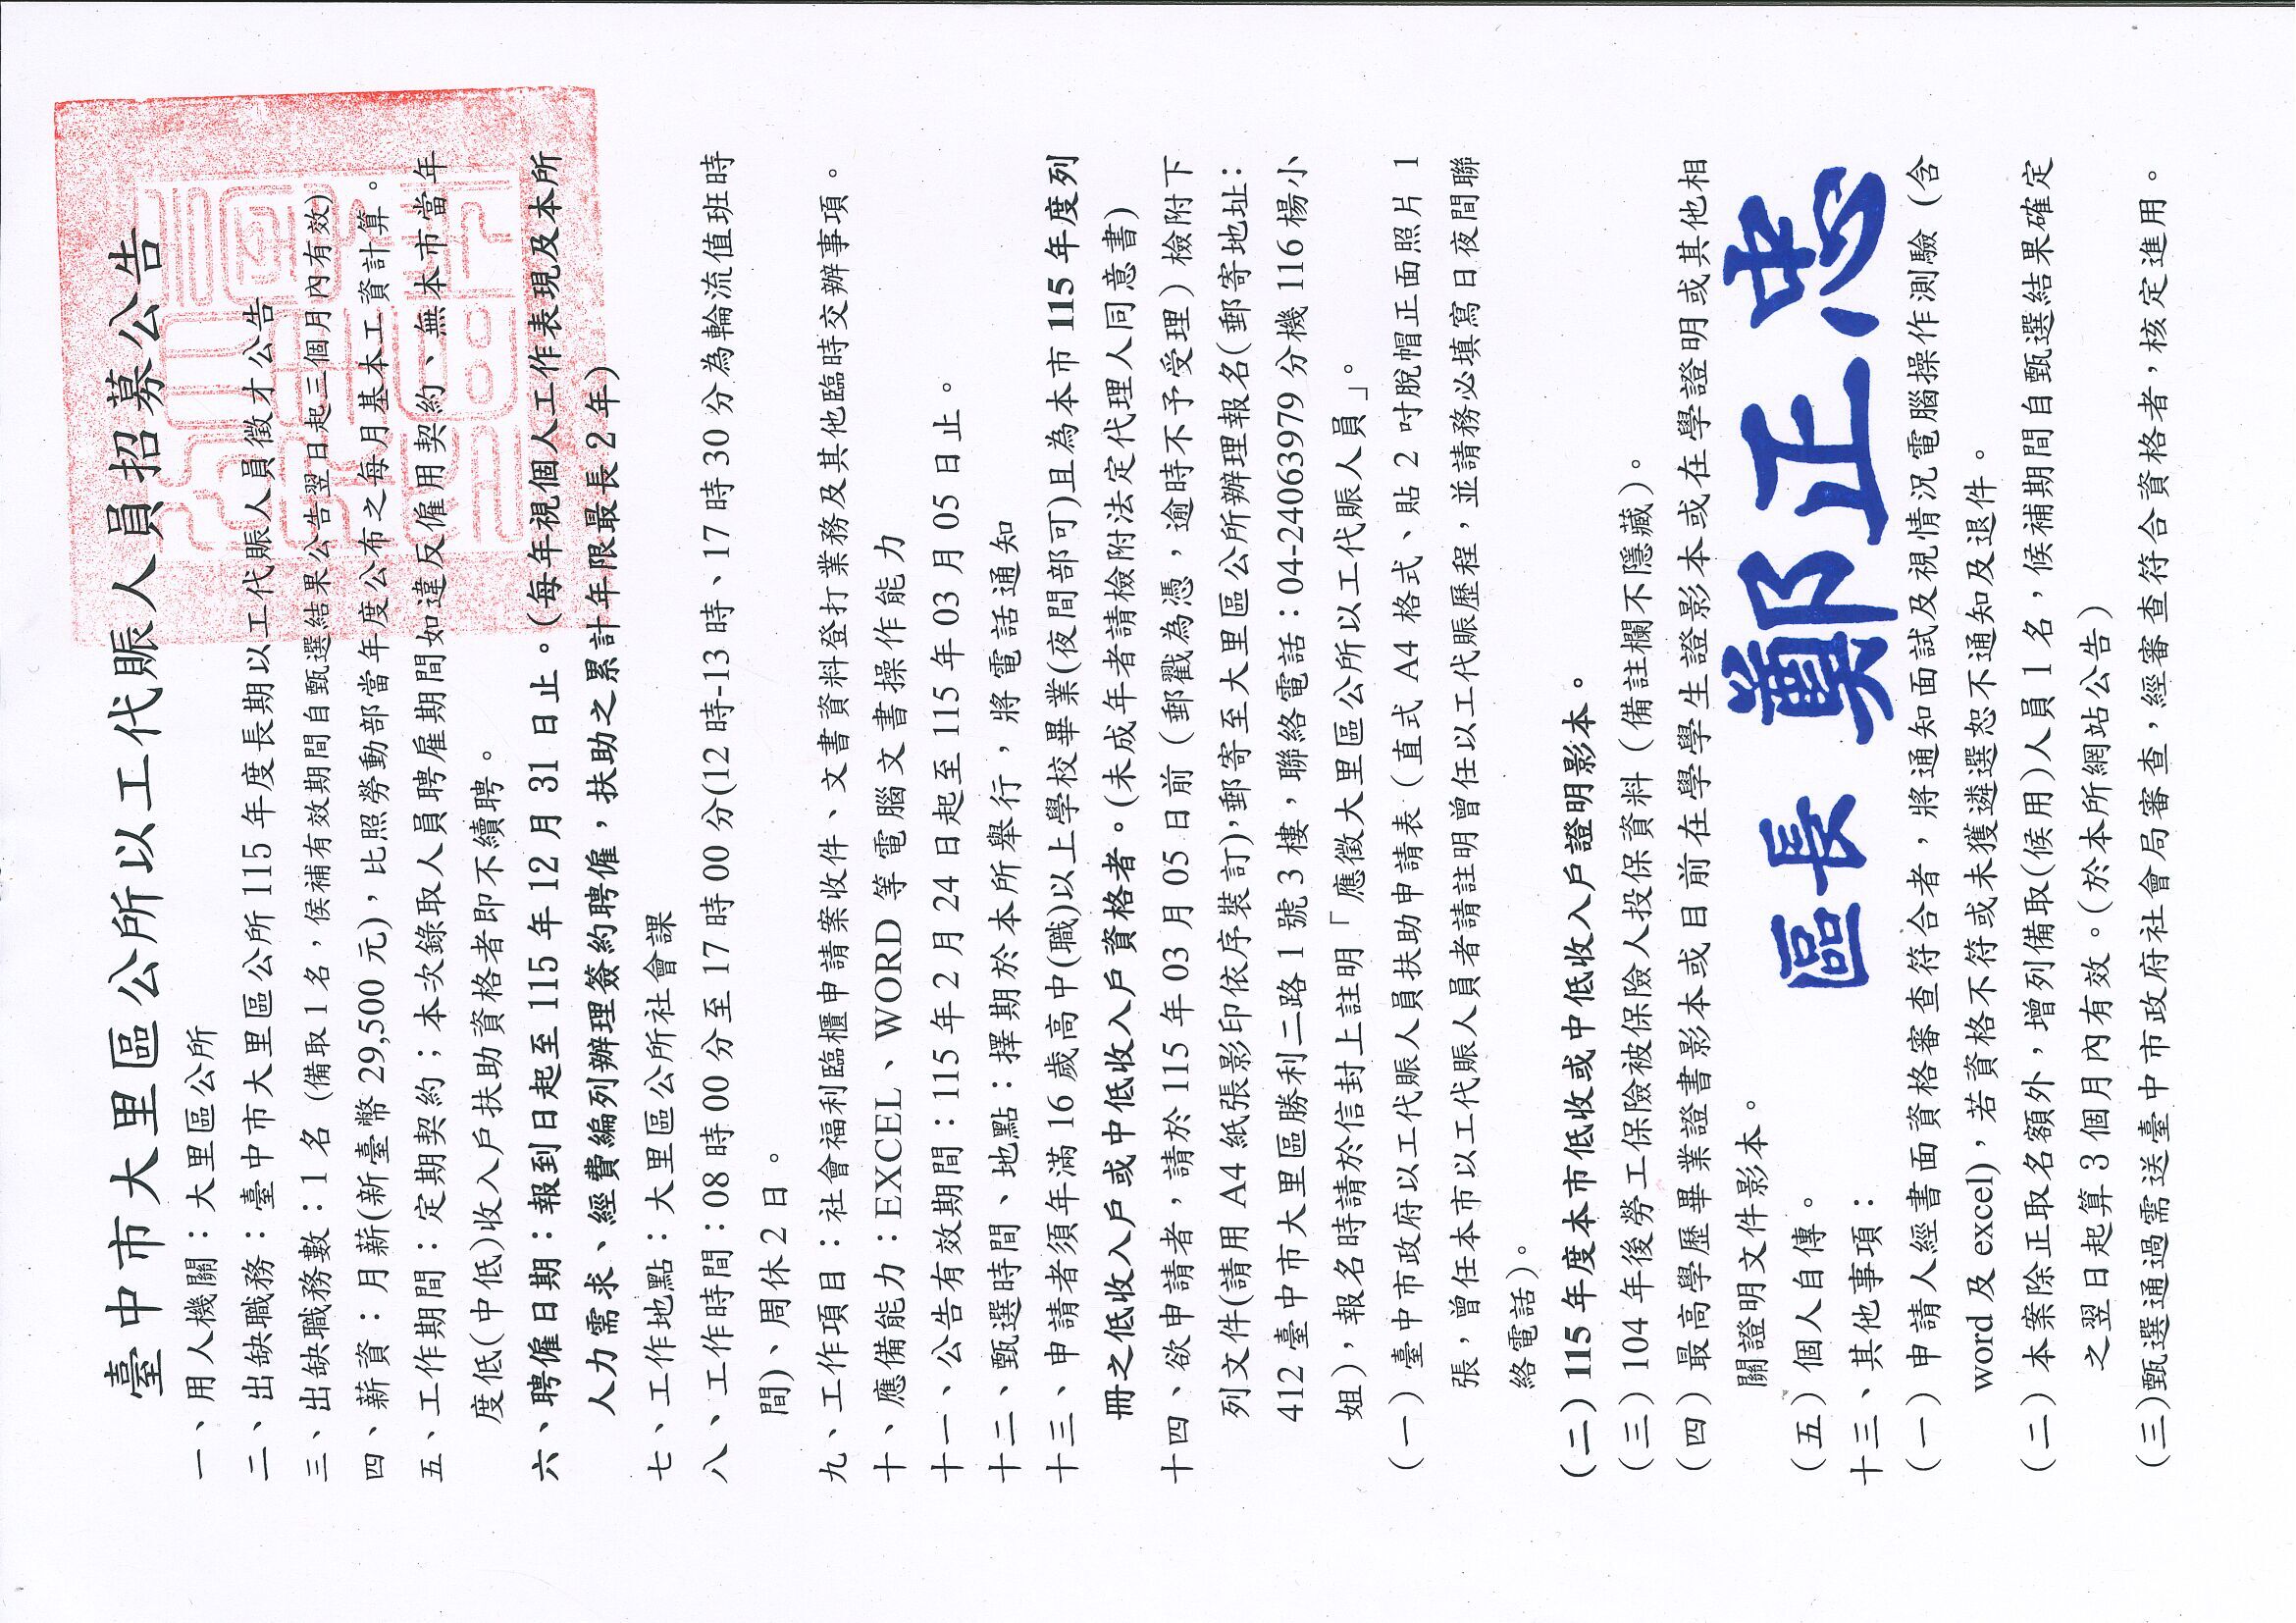 臺中市大里區公所以工代賑人員招募公告
一、用人機關：大里區公所
二、出缺職務：臺中市大里區公所 115 年度長期以工代賑人員徵才公告
三、出缺職務數：1 名 (備取 1 名，侯補有效期間自甄選結果公告翌日起三個月內有效)
四、薪資：月薪(新臺幣 29,500 元)，比照勞動部當年度公布之每月基本工資計算。
五、工作期間：定期契約；本次錄取人員聘雇期間如違反僱用契約、無本市當年
度低(中低)收入戶扶助資格者即不續聘。
六、聘僱日期：報到日起至 115 年 12 月 31 日止。(每年視個人工作表現及本所
人力需求、經費編列辦理簽約聘僱，扶助之累計年限最長 2 年)
七、工作地點：大里區公所社會課
八、工作時間：08 時 00 分至 17 時 00 分(12 時-13 時、17 時 30 分為輪流值班時
間)、周休 2 日。
九、工作項目：社會福利臨櫃申請案收件、文書資料登打業務及其他臨時交辦事項。
十、應備能力：EXCEL、WORD 等電腦文書操作能力
十一、公告有效期間：115 年 2 月 24 日起至 115 年 03 月 05 日止。
十二、甄選時間、地點：擇期於本所舉行，將電話通知
十三、申請者須年滿 16 歲高中(職)以上學校畢業(夜間部可)且為本市 115 年度列
冊之低收入戶或中低收入戶資格者。(未成年者請檢附法定代理人同意書)
十四、欲申請者，請於 115 年 03 月 05 日前（郵戳為憑，逾時不予受理）檢附下
列文件(請用 A4 紙張影印依序裝訂)，郵寄至大里區公所辦理報名(郵寄地址：
412 臺中市大里區勝利二路 1 號 3 樓，聯絡電話：04-24063979 分機 116 楊小
姐)，報名時請於信封上註明「應徵大里區公所以工代賑人員」。
（一）臺中市政府以工代賑人員扶助申請表（直式 A4 格式、貼 2 吋脫帽正面照片 1
張，曾任本市以工代賑人員者請註明曾任以工代賑歷程，並請務必填寫日夜間聯
絡電話)。
（二）115 年度本市低收或中低收入戶證明影本。
（三）104 年後勞工保險被保險人投保資料（備註欄不隱藏）。
（四）最高學歷畢業證書影本或目前在學學生證影本或在學證明或其他相
關證明文件影本。
（五）個人自傳。
十三、其他事項：
（一）申請人經書面資格審查符合者，將通知面試及視情況電腦操作測驗（含
word 及 excel)，若資格不符或未獲遴選恕不通知及退件。
（二）本案除正取名額外，增列備取(候用)人員 1 名，候補期間自甄選結果確定
之翌日起算 3 個月內有效。(於本所網站公告)
（三)甄選通過需送臺中市政府社會局審查，經審查符合資格者，核定進用。
區長 鄭正忠